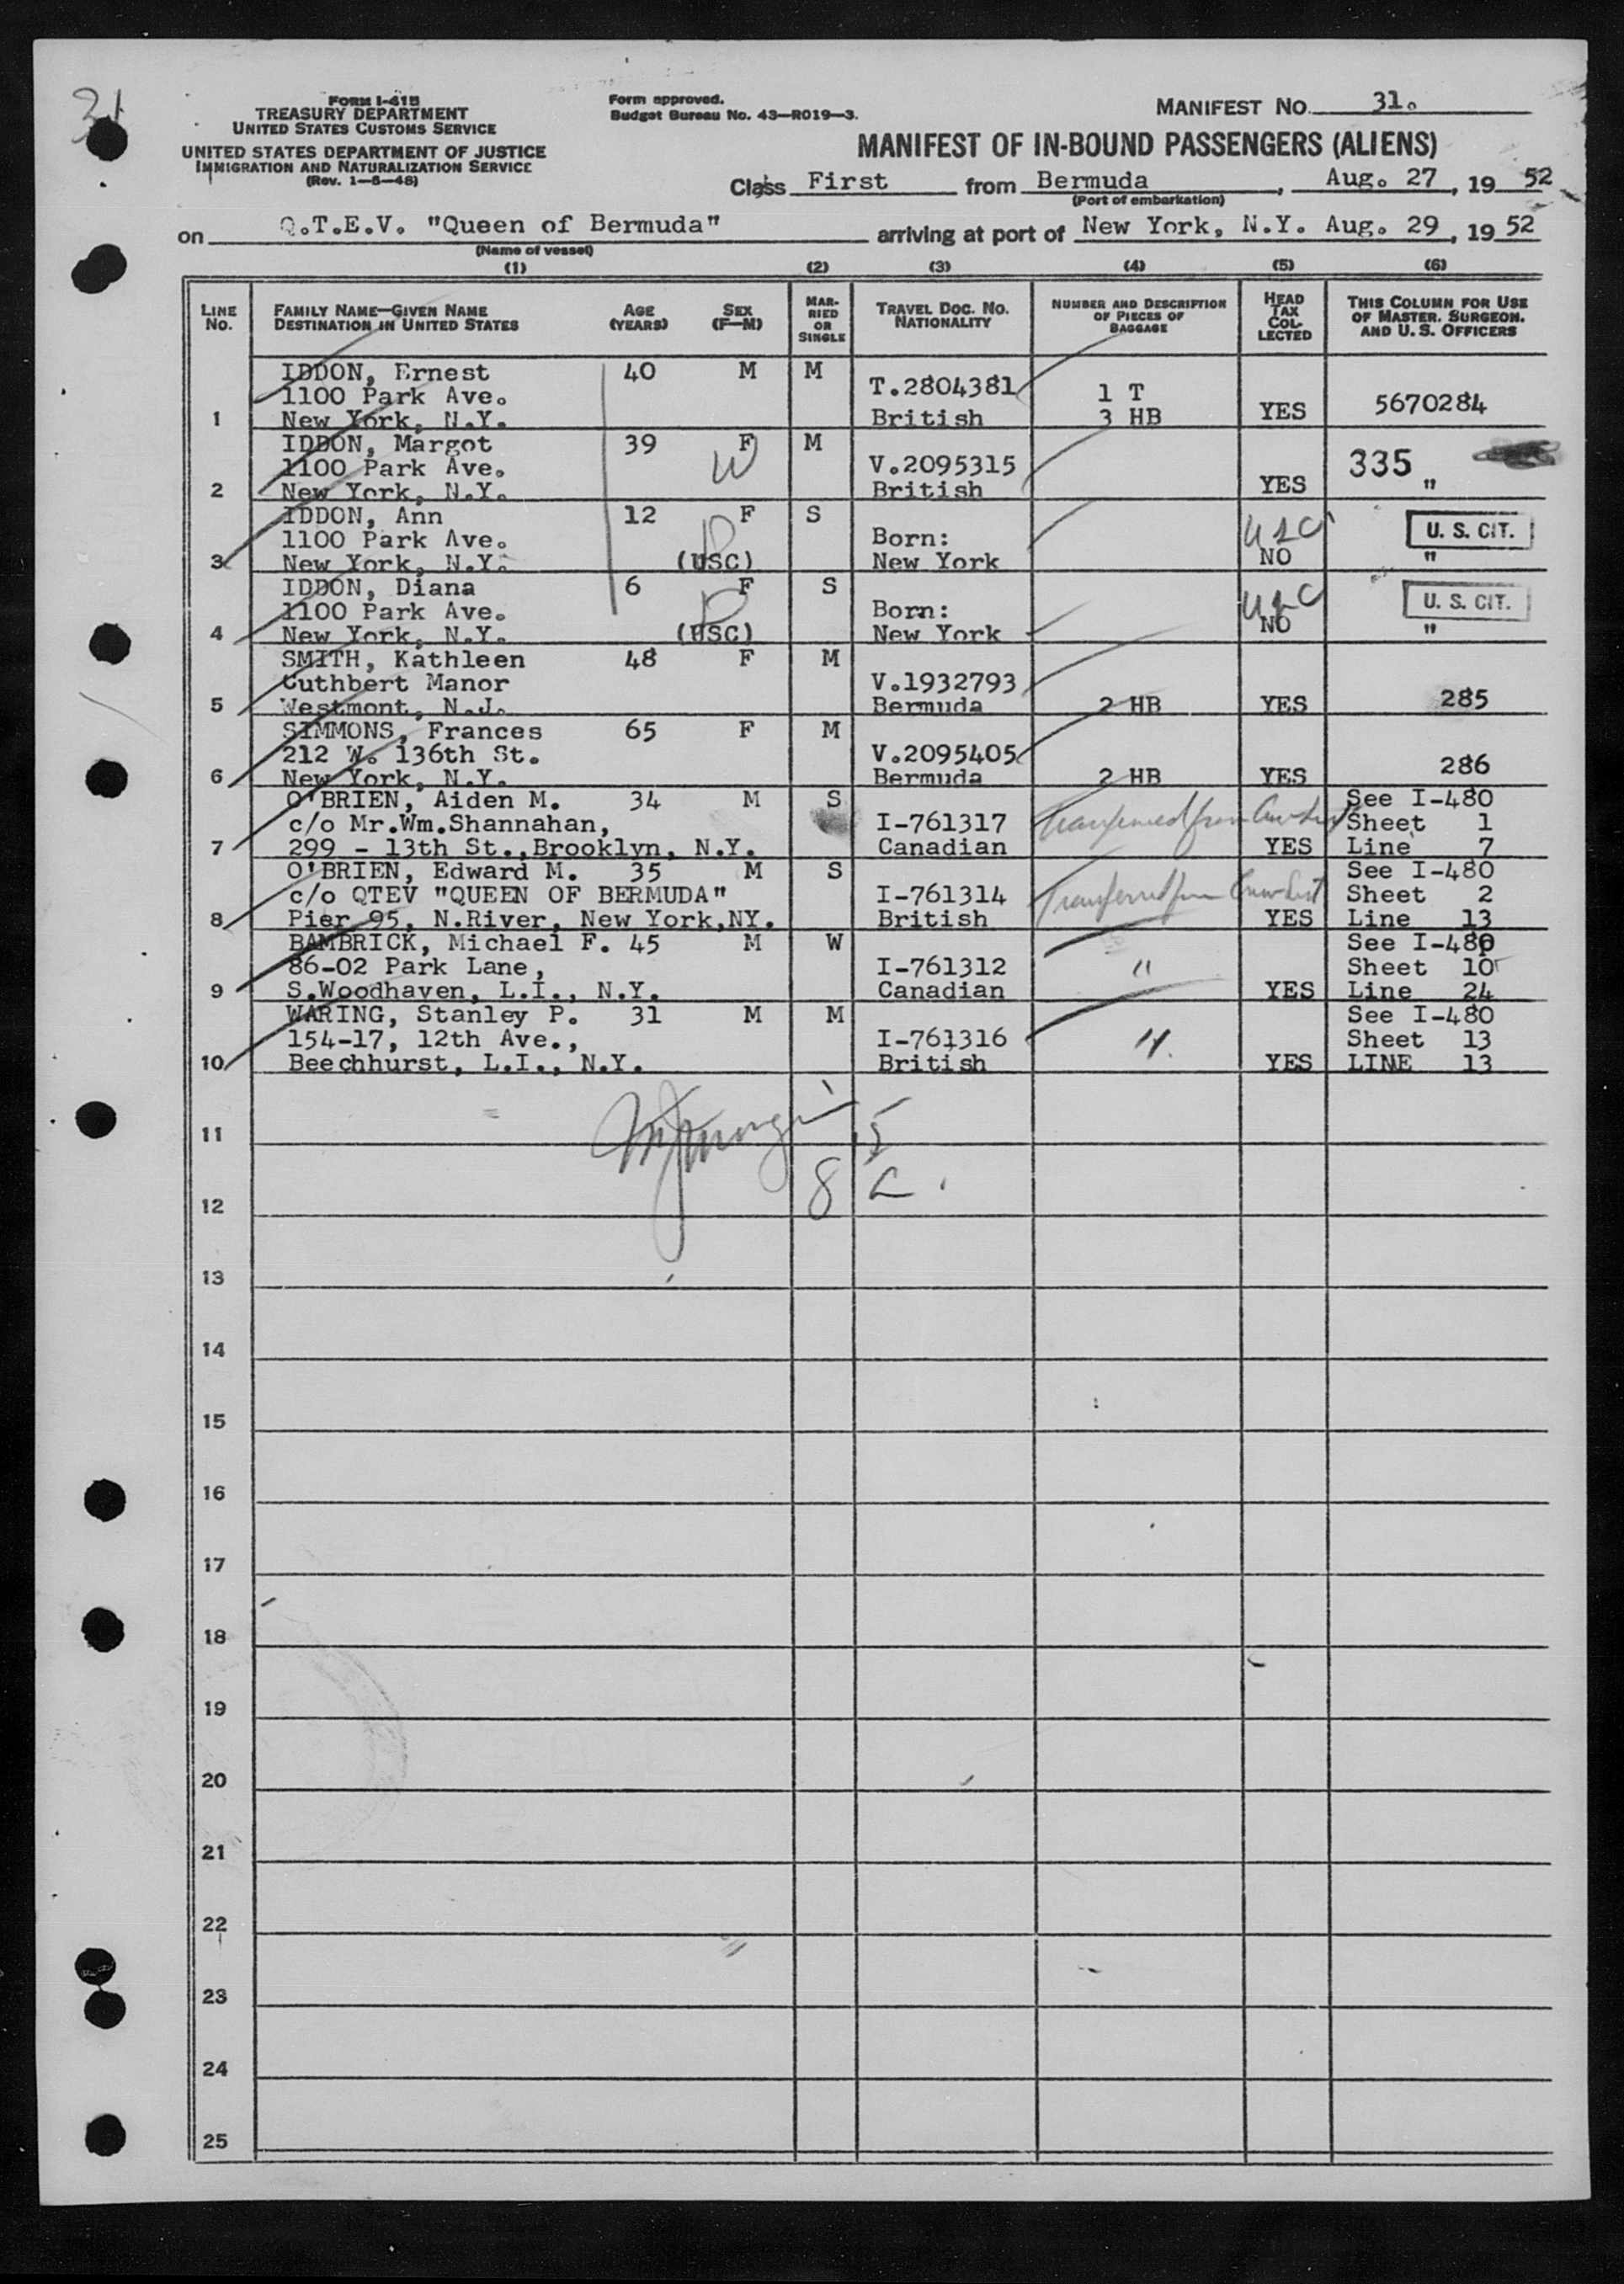 31
FORM I-415
TREASURY DEPARTMENT
UNITED STATES CUSTOMS SERVICE
UNITED STATES DEPARTMENT OF JUSTICE
IMMIGRATION AND NATURALIZATION SERVICE
(Rev. 1-5-48)
Form approved.
Budget Bureau No. 43-R019-3.
MANIFEST NO. 31.
MANIFEST OF IN-BOUND PASSENGERS (ALIENS)
Class First from Bermuda, Aug. 27, 1952
(Port of embarkation)
on Q.T.E.V. "Queen of Bermuda" arriving at port of New York, N.Y. Aug. 29, 1952
(Name of vessel)
(1) (2) (3) (4) (5) (6)
LINE No. FAMILY NAME—GIVEN NAME DESTINATION IN UNITED STATES AGE (YEARS) SEX (F—M) MARRIED OR SINGLE TRAVEL DOC. NO. NATIONALITY NUMBER AND DESCRIPTION OF PIECES OF BAGGAGE HEAD TAX COLLECTED THIS COLUMN FOR USE OF MASTER. SURGEON. AND U. S. OFFICERS
IDDON, Ernest 40 M M
1100 Park Ave. T.2804381 1 T 5670284
1 New York, N.Y. British 3 HB YES
IDDON, Margot 39 F M
1100 Park Ave. W V.2095315 335
2 New York, N.Y. British YES "
IDDON, Ann 12 F S
1100 Park Ave. Born: USC U. S. CIT.
3 New York, N.Y. (USC) New York NO "
IDDON, Diana 6 F S
1100 Park Ave. Born: USC U. S. CIT.
4 New York, N.Y. (USC) New York NO "
SMITH, Kathleen 48 F M
Cuthbert Manor V.1932793
5 Westmont, N.J. Bermuda 2 HB YES 285
SIMMONS, Frances 65 F M
212 W. 136th St. V.2095405
6 New York, N.Y. Bermuda 2 HB YES 286
O'BRIEN, Aiden M. 34 M S See I-480
c/o Mr.Wm.Shannahan, I-761317 Transferred from Crew List Sheet 1
7 299 - 13th St.,Brooklyn, N.Y. Canadian YES Line 7
O'BRIEN, Edward M. 35 M S See I-480
c/o QTEV "QUEEN OF BERMUDA" I-761314 Transferred from Crew List Sheet 2
8 Pier 95, N.River, New York,NY. British YES Line 13
BAMBRICK, Michael F. 45 M W See I-480
86-02 Park Lane, I-761312 " Sheet 10
9 S.Woodhaven, L.I., N.Y. Canadian YES Line 24
WARING, Stanley P. 31 M M See I-480
154-17, 12th Ave., I-761316 " Sheet 13
10 Beechhurst, L.I., N.Y. British YES LINE 13
11
12
13
14
15
16
17
18
19
20
21
22
23
24
25